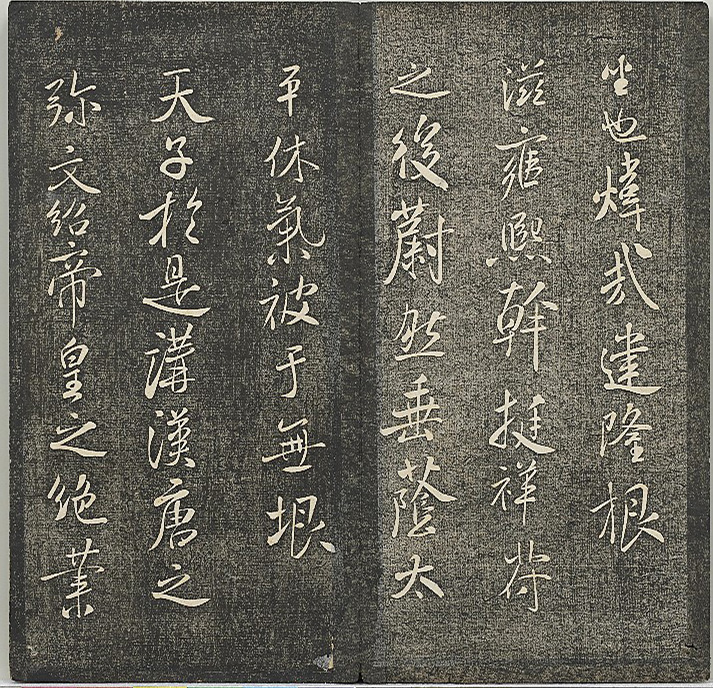 坐也煒哉建隆根
滋雍熙幹挺祥符
之後蔚然垂蔭太
平休氣被于無垠
天子於是講漢唐之
弥文紹帝皇之絶業